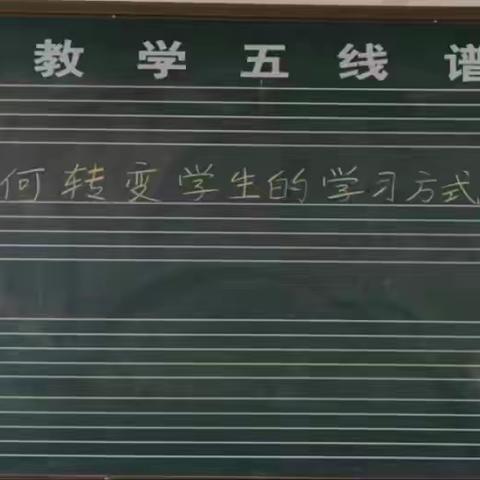 教学五线谱
何转变学生的学习方式